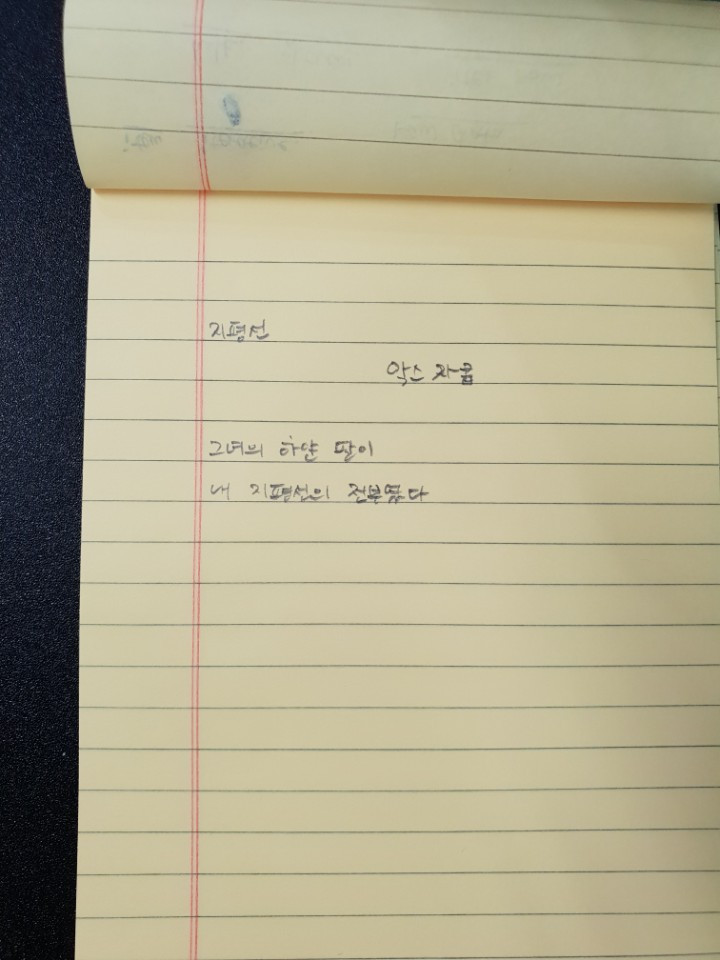 지평선
막스 자콥
그녀의 하얀 팔이
내 지평선의 전부였다